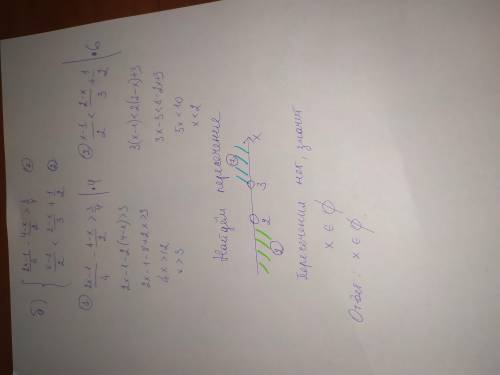 б) { (2x-1)/4 - (4-x)/2 > 3/4 ①
(x-1)/2 < (2-x)/3 + 1/2 ②
① (2x-1)/4 - (4-x)/2 > 3/4 | •4
2x-1-2(4-x)>3
2x-1-8+2x>3
4x>12
x>3
② (x-1)/2 < (2-x)/3 + 1/2 | •6
3(x-1)<2(2-x)+3
3x-3<4-2x+3
5x<10
x<2
Найдём пересечение
② 2 3 ① x
Пересечения нет, значит
x ∈ ∅
Ответ: x ∈ ∅.